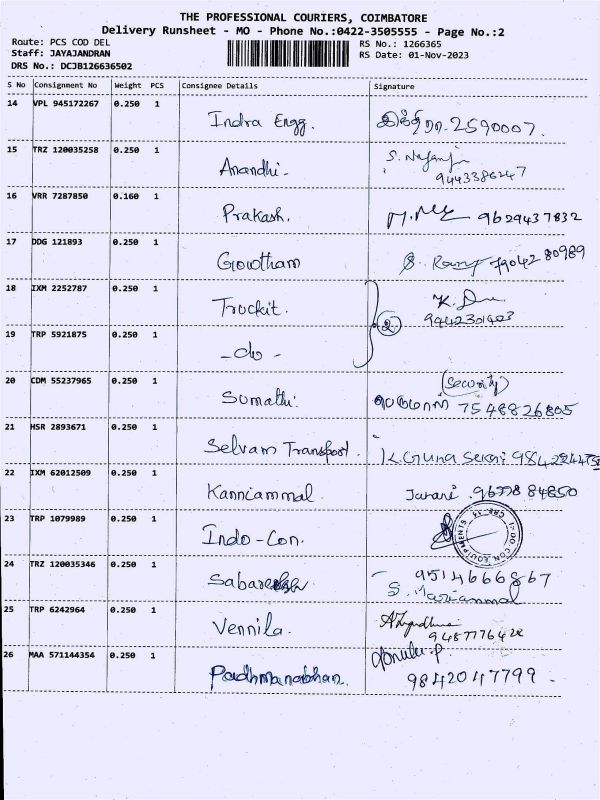 THE PROFESSIONAL COURIERS, COIMBATORE
Delivery Runsheet - MO - Phone No.:0422-3505555 - Page No.:2
Route: PCS COD DEL RS No.: 1266365
Staff: JAYAJANDRAN RS Date: 01-Nov-2023
DRS No.: DCJB126636502
S No Consignment No Weight PCS Consignee Details Signature
14 VPL 945172267 0.250 1 Indra Engg. 2590007.
15 TRZ 120035258 0.250 1 Anandhi. 9443386247
16 VRR 7287850 0.160 1 Prakash. 9629437832
17 DDG 121893 0.250 1 Gowtham 7904280989
18 IXM 2252787 0.250 1 Truckit. 2
19 TRP 5921875 0.250 1 - do -
20 CDM 55237965 0.250 1 Sumathi. (Security) 7548826805
21 HSR 2893671 0.250 1 Selvam Transport. K. Guna Sekar
22 IXM 62012509 0.250 1 Kanniammal
23 TRP 1079989 0.250 1 Indo-Con.
24 TRZ 120035346 0.250 1 9514666867
S. Mariammal
25 TRP 6242964 0.250 1 Vennila.
26 MAA 571144354 0.250 1 Padhmanabhan. 9842047799